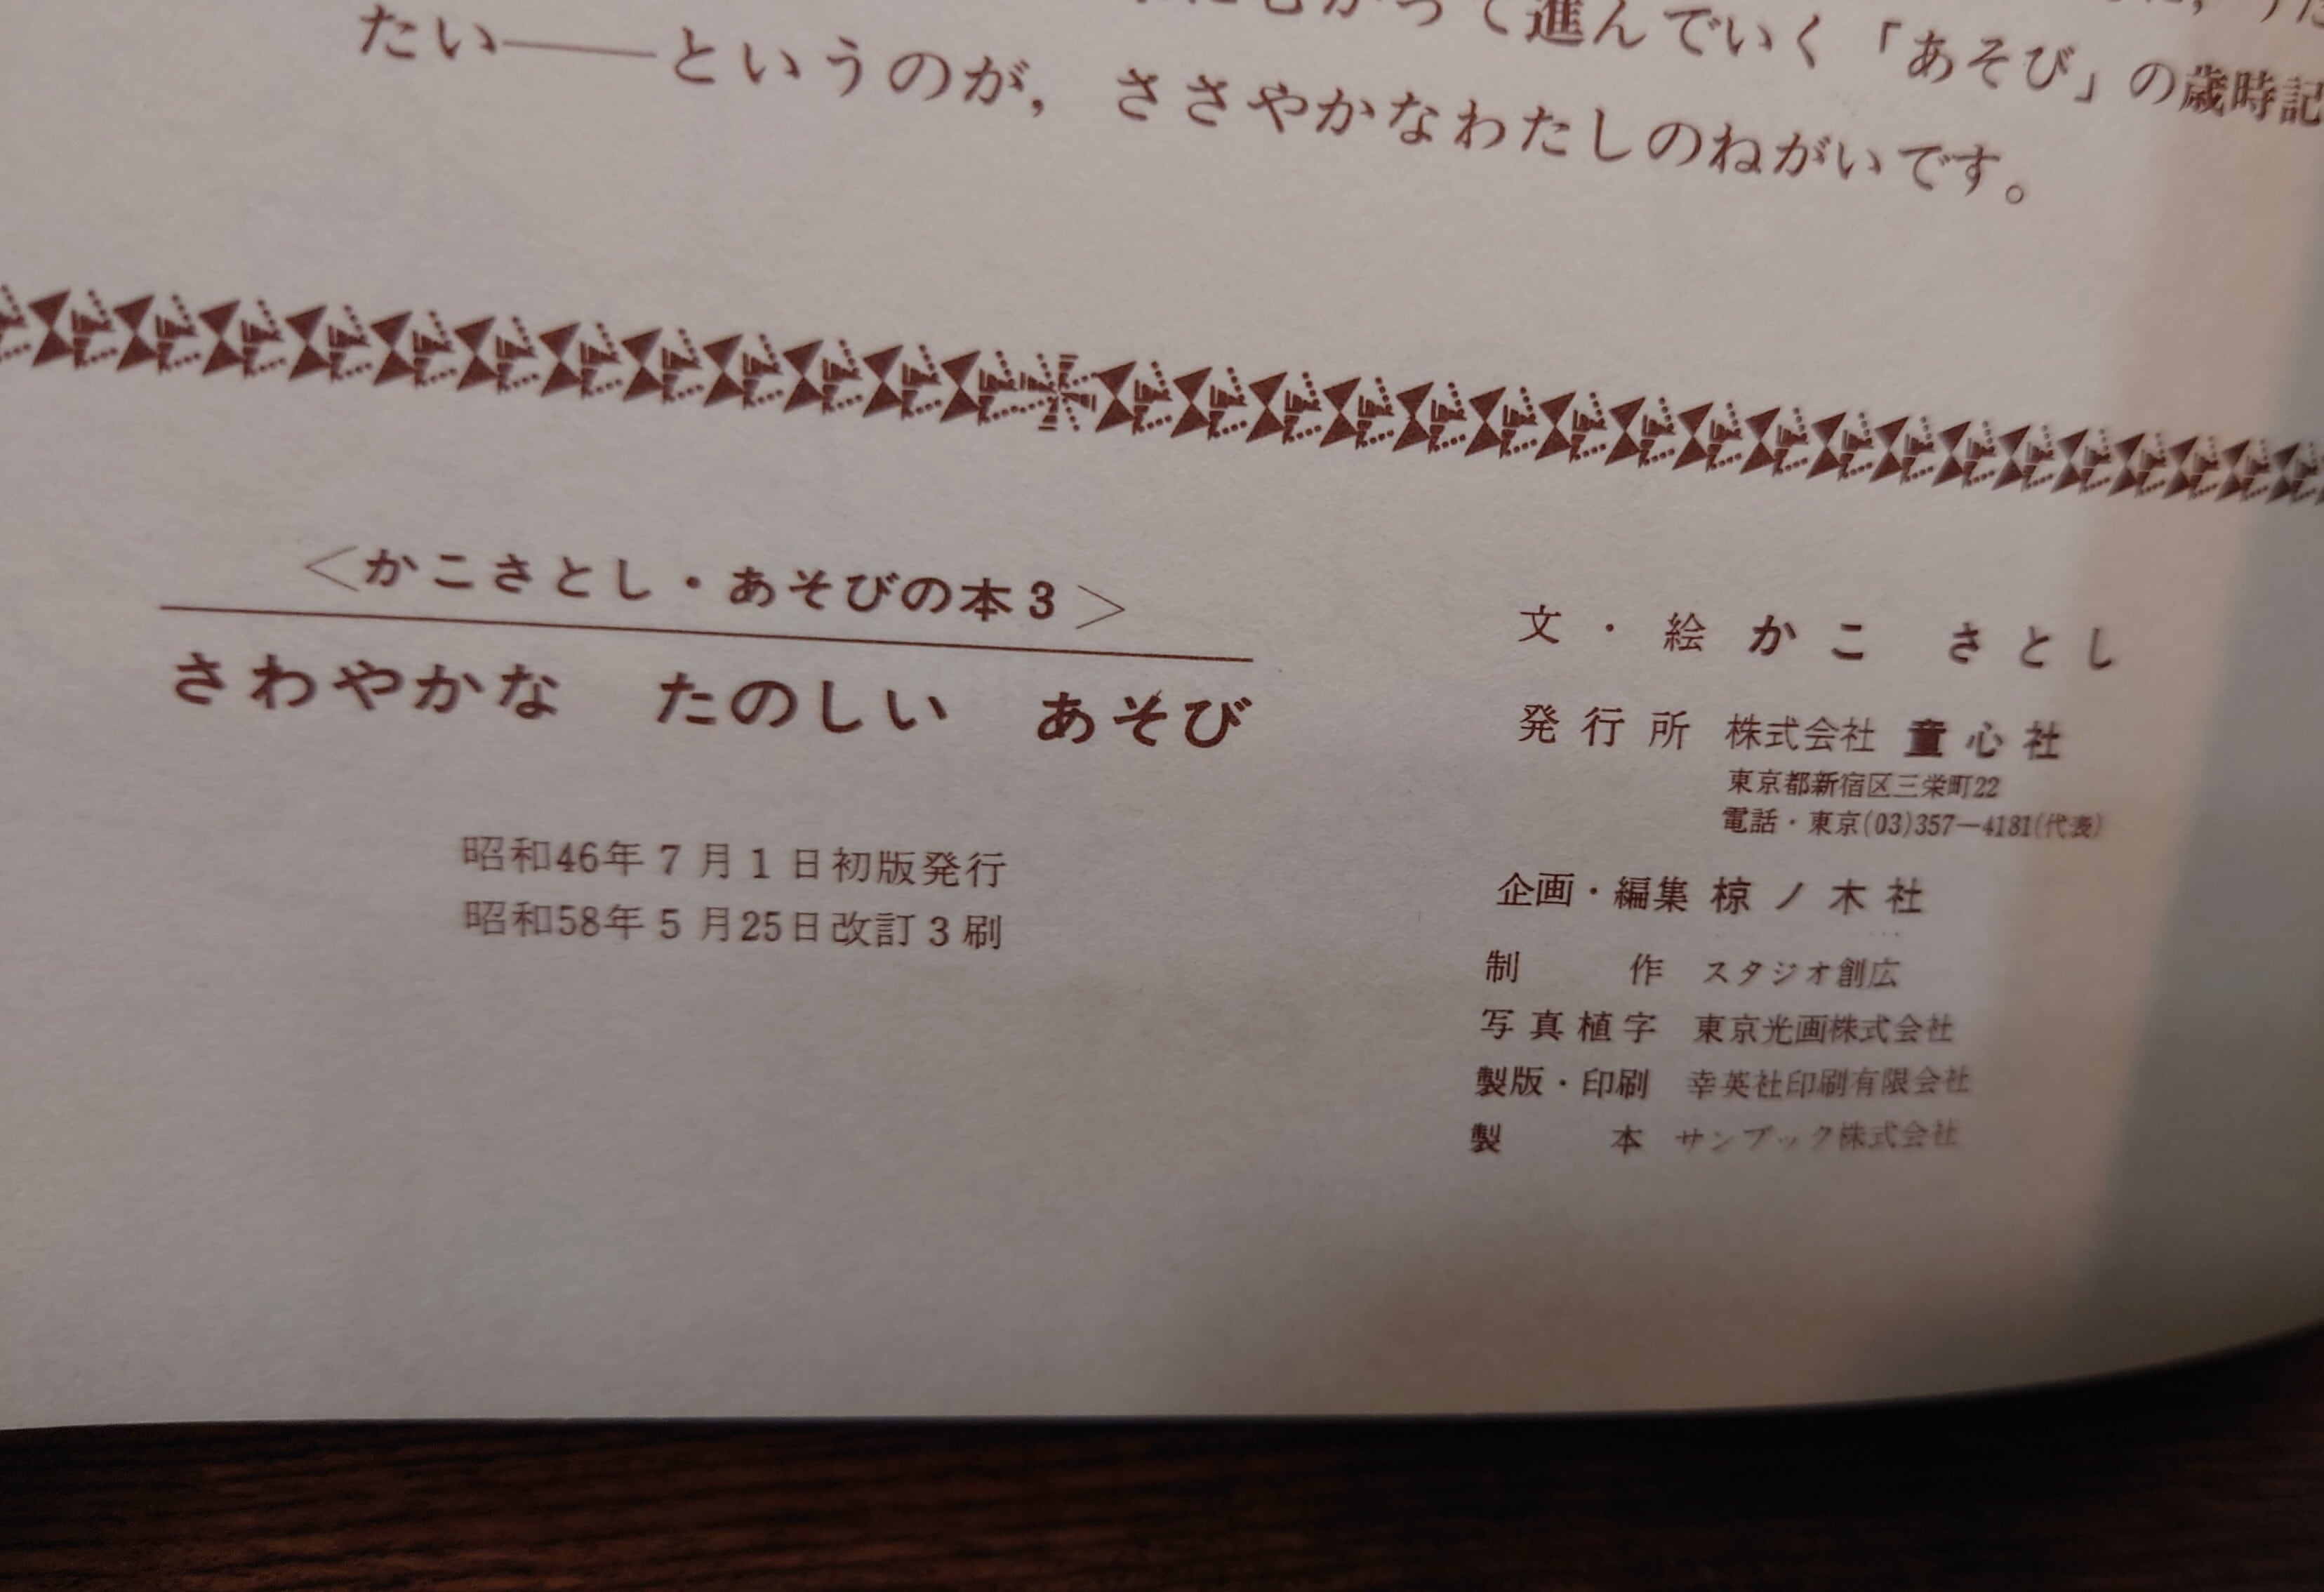 むかって進んでいく「あそび」の歳時記
たい——というのが，ささやかなわたしのねがいです。
＜かこさとし・あそびの本3＞
さわやかな　たのしい　あそび
昭和46年7月1日初版発行
昭和58年5月25日改訂3刷
文・絵　かこ　さとし
発行所　株式会社　童心社
東京都新宿区三栄町22
電話・東京(03)357—4181(代表)
企画・編集　椋ノ木社
制　作　スタジオ創広
写真植字　東京光画株式会社
製版・印刷　幸英社印刷有限会社
製　本　サンブック株式会社